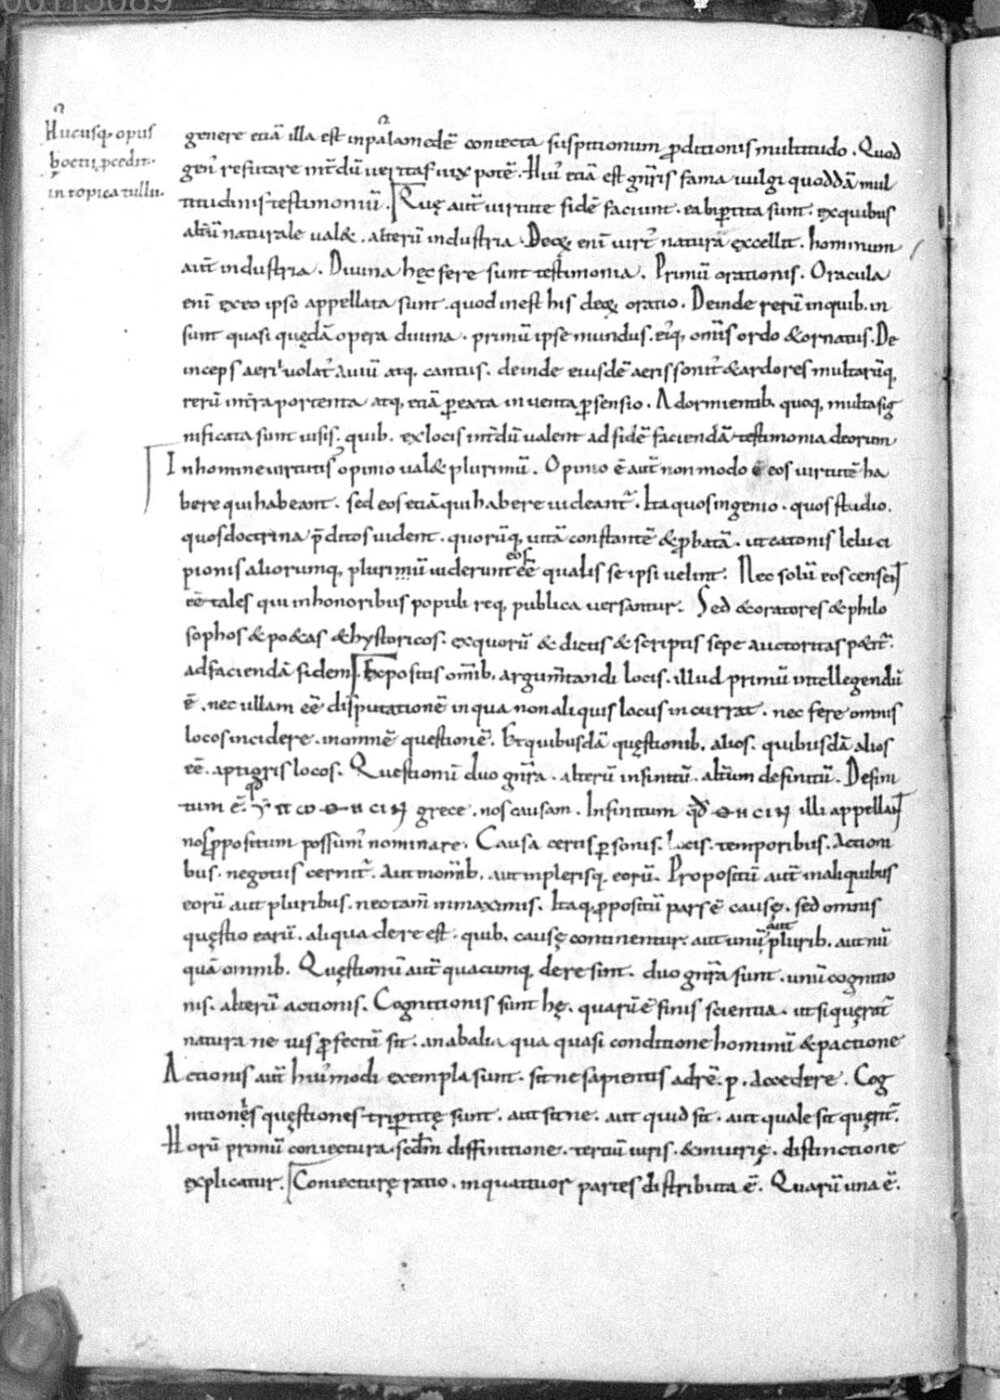 00113089
Hucusq; opus
boetii p̄cedit.
in topica tullii.
genere etiā illa est inpalamedē coniecta suspitionum ꝓditionis multitudo. Quod
gen̓ refutare int̄dū ueritas uix potē. Hui̓ etiā est gn̄ris fama uulgi quoddā mul
titudinis testimoniū. Quę aut̄ uirtute fidē faciunt. ea biꝑtita sunt. ex quibus
alt̄ū naturale ual&. alterū industria. Deoꝝ enī uirt̓ natura excellit. hominum
aut̄ industria. Diuina hęc fere sunt testimonia. Primū orationis. Oracula
enī ex eo ipso appellata sunt. quod inest his deoꝝ oratio. Deinde rerū in quib. in
sunt quasi quędā opera diuina. primū ipse mundus. ei̓q; om̄is ordo & ornatus. De
inceps aerii uolat̓ auiū atq; cantus. deinde eiusdē aeris sonit̓ & ardores multarūq;
rerū int̄ra portenta atq; etiā ꝑ exta inuenta ꝑsensio. A dormientib. quoq; multa sig
nificata sunt uisis. quib. ex locis int̄dū ualent ad fidē faciendā testimonia deorum
In homine uirtutis opinio ual& plurimū. Opinio ē aut̄ non modo ē eos uirtutē ha
bere qui habeant. sed eos etiā qui habere uideant̄. Itaquos ingenio. quos studio.
quos doctrina p̄ditos uident. quorūq; uitā constantē & ꝓbatā. ut catonis leli sci
pionis aliorumq; plurimū uiderunt eos ēē qualis se ipsi uelint. Nec solū eos censent
ēē tales qui in honoribus populi req; publica uersantur. Sed & oratores & philo
sophos & po&as & hystoricos. ex quorū & dictis & scriptis sepe auctoritas p&it̄.
ad faciendā fidem. Expositis om̄ib. argum̄tandi locis. illud primū intellegendū
ē. nec ullam ēē disputationē in qua non aliquis locus incurrat. nec fere omnis
locos incidere. in omnē quęstionē. Et quibusdā quęstionib. alios. quibusdā alios
ēē. aptioris locos. Quęstionū duo gn̄ra. alterū infinitū. alt̄um definitū. Defini
tum ē. qđ ΥΠΟΘΗCΙΝ grece. nos causam. Infinitum qđ ΘΗCΙΝ illi appellant
nos ꝓpositum possum̓ nominare. Causa certis ꝑsonis. locis. temporibus. actioni
bus. negotiis cernit̄. aut in om̄ib. aut in plerisq; eorū. Propositū aut̄ in aliquibus
eorū aut pluribus. nec tam̄ in maximis. Itaq; ꝓpositū pars ē causę. sed omnis
quęstio earū. aliqua de re est. quib. causę continentur. aut unū aut plurib. aut nū
quā omnib. Quęstionū aut̄ quacumq; de re sint. duo gn̄ra sunt. unū cognitio
nis. alterū actionis. Cognitionis sunt hę. quarū ē finis scientia. ut si querat̄
natura ne ius ꝓfectū sit. an ab alia qua quasi conditione hominū & pactione
Actionis aut̄ hui̓modi exempla sunt. sit ne sapientis ad rē. p. accedere. Cog
nitionęs quęstiones triꝑtitę sunt. aut sit ne. aut quid sit. aut quale sit querit̄.
Horū primū coniectura. scd̄m diffinitione. tertiū iuris. & iniurię. distinctione
explicatur. Coniecturę ratio. in quattuor partes distributa ē. Quarū una ē.